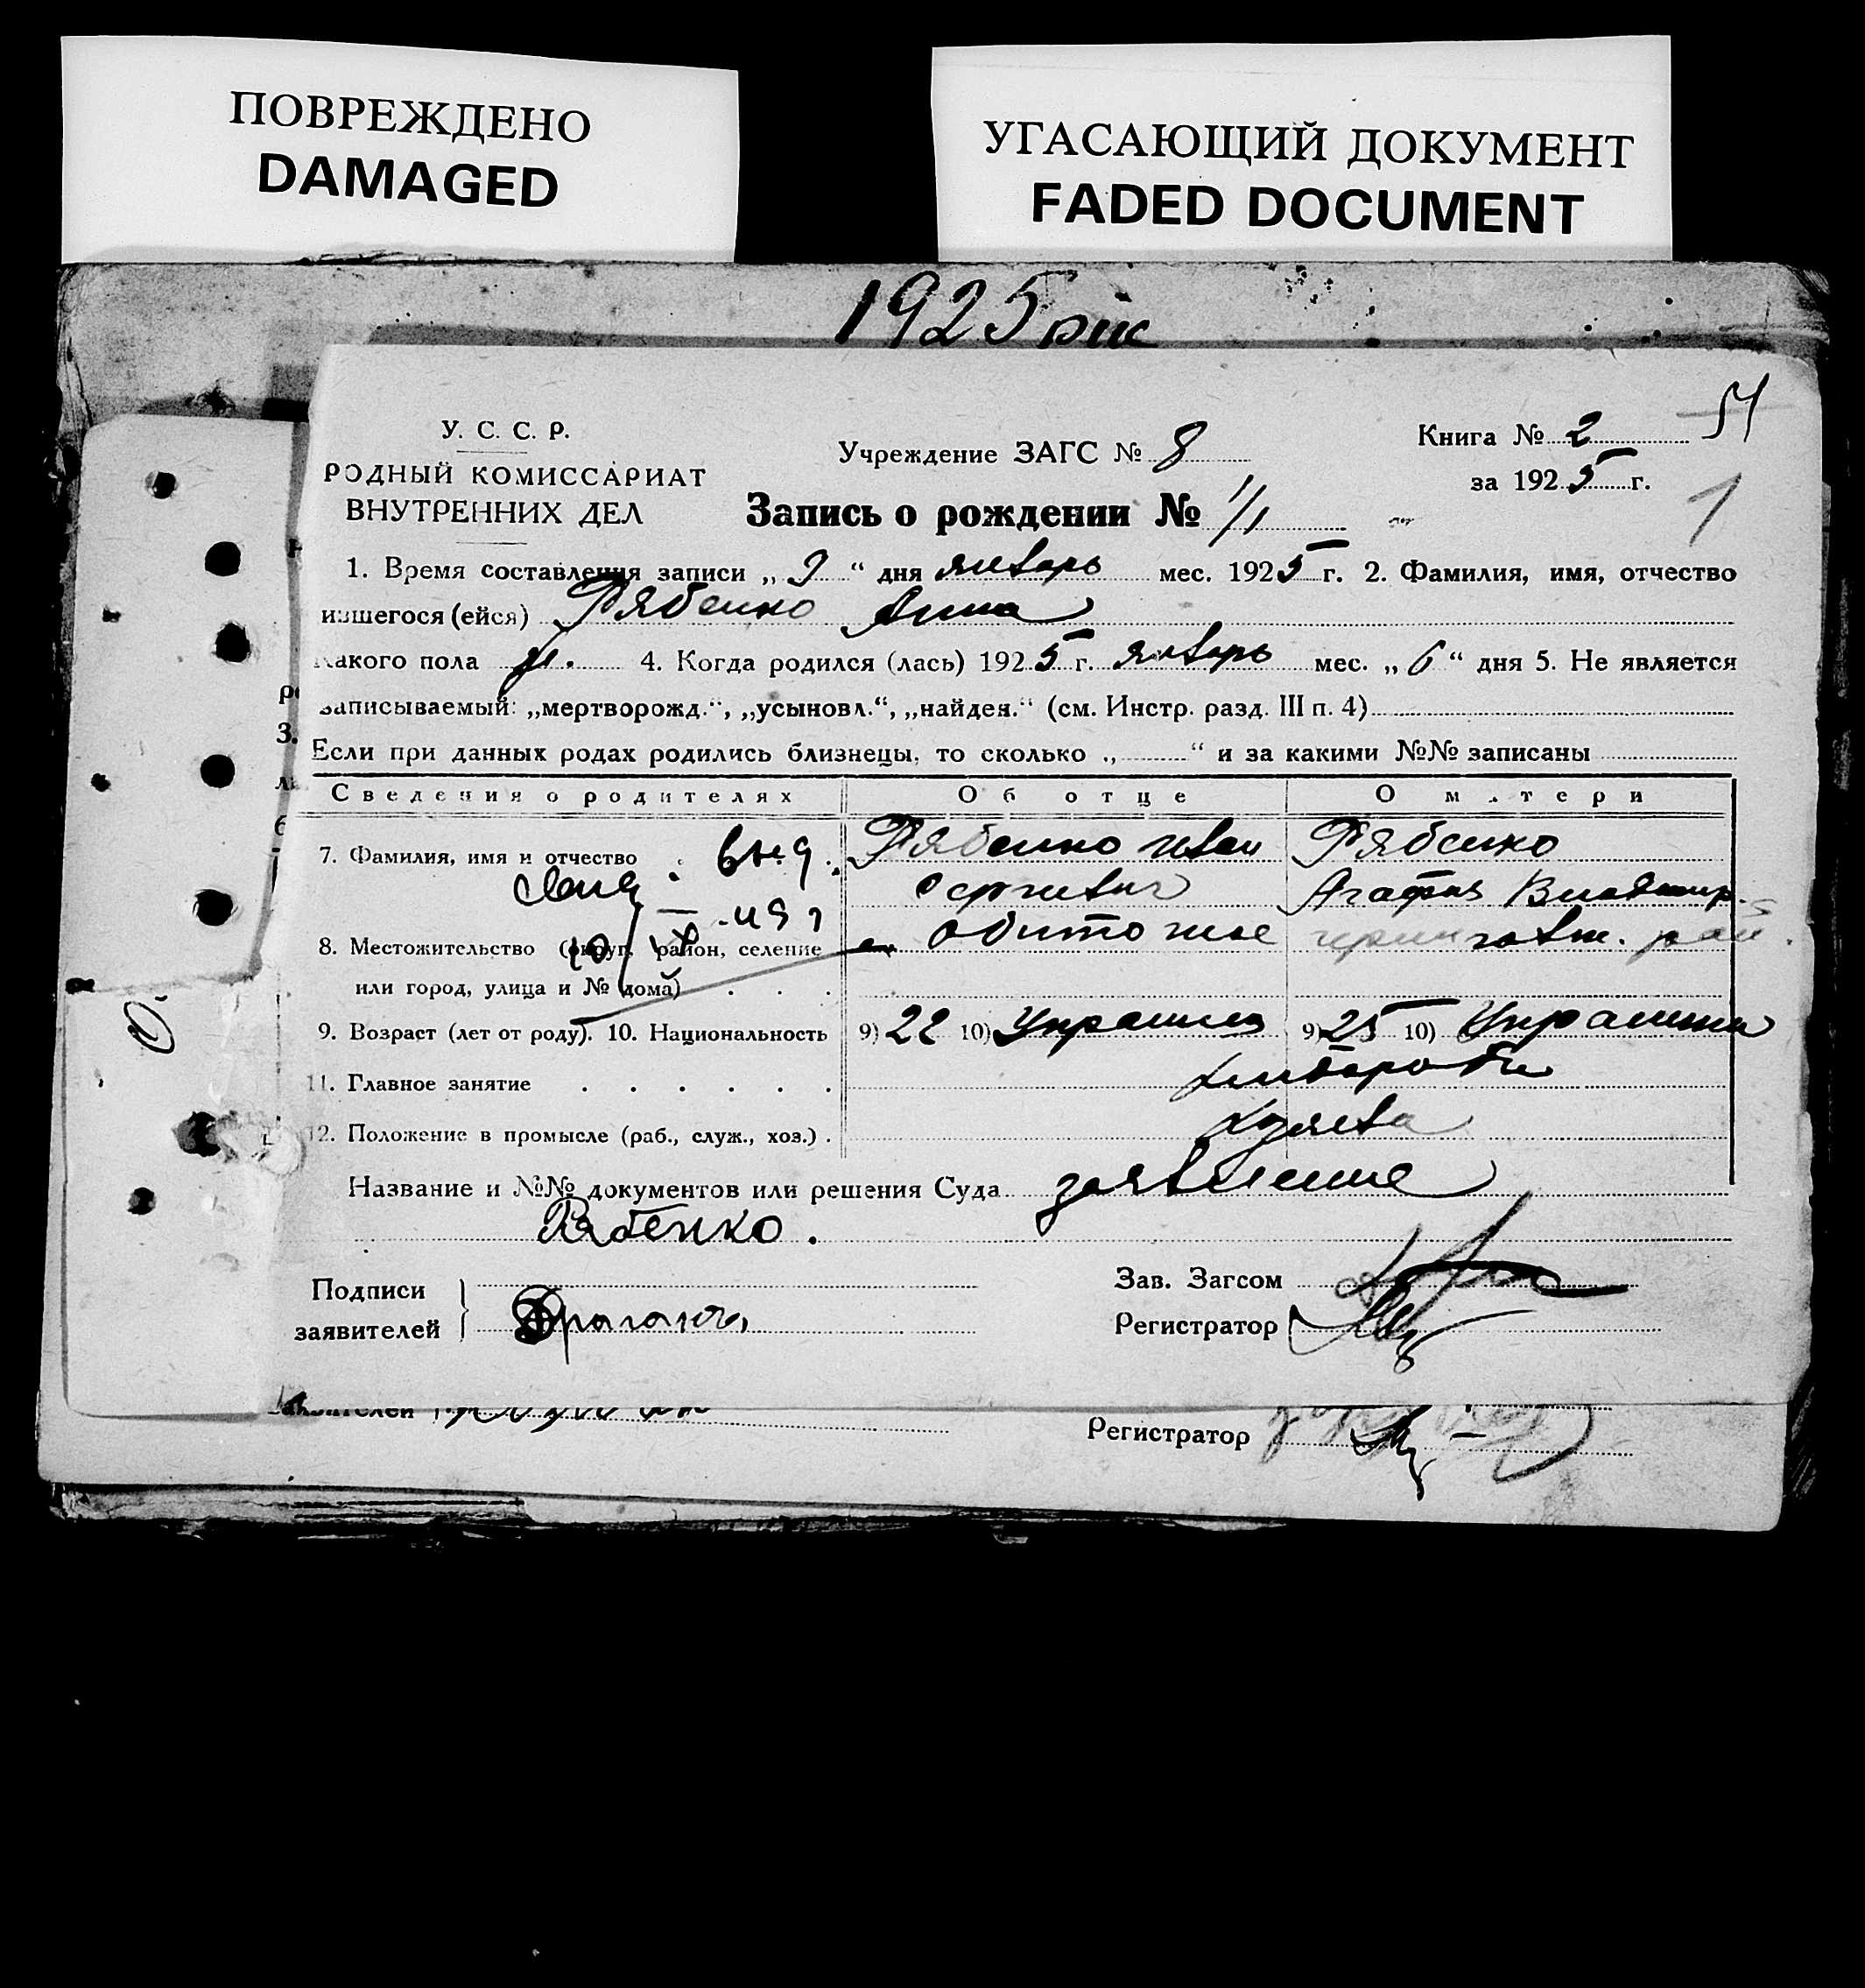 ПОВРЕЖДЕНО
DAMAGED
УГАСАЮЩИЙ ДОКУМЕНТ
FADED DOCUMENT
1925 рік
У. С. С. Р.
РОДНЫЙ КОМИССАРИАТ
ВНУТРЕННИХ ДЕЛ
Учреждение ЗАГС № 8
Книга № 2
за 1925 г.
1
Запись о рождении № 1/1
1. Время составления записи „ 9 “ дня январь мес. 1925 г. 2. Фамилия, имя, отчество
ившегося (ейся) Рябенко Анна
какого пола ж. 4. Когда родился (лась) 1925 г. январь мес. „ 6 “ дня 5. Не является
записываемый: „мертворожд.“, „усыновл.“, „найден.“ (см. Инстр. разд. III п. 4)
Если при данных родах родились близнецы, то сколько „ “ и за какими №№ записаны
Сведения о родителях Об отце О матери
7. Фамилия, имя и отчество Рябенко Иван Рябенко
Сергиевич Агафия Владимир.
8. Местожительство (округ, район, селение Обиточное район
или город, улица и № дома)
9. Возраст (лет от роду). 10. Национальность 9) 22 10) Украинец 9) 25 10) Украинка
11. Главное занятие хлебороб
12. Положение в промысле (раб., служ., хоз.) . хозяева
Название и №№ документов или решения Суда заявление
Рябенко .
Подписи
заявителей
Зав. Загсом
Регистратор
заявителей
Регистратор